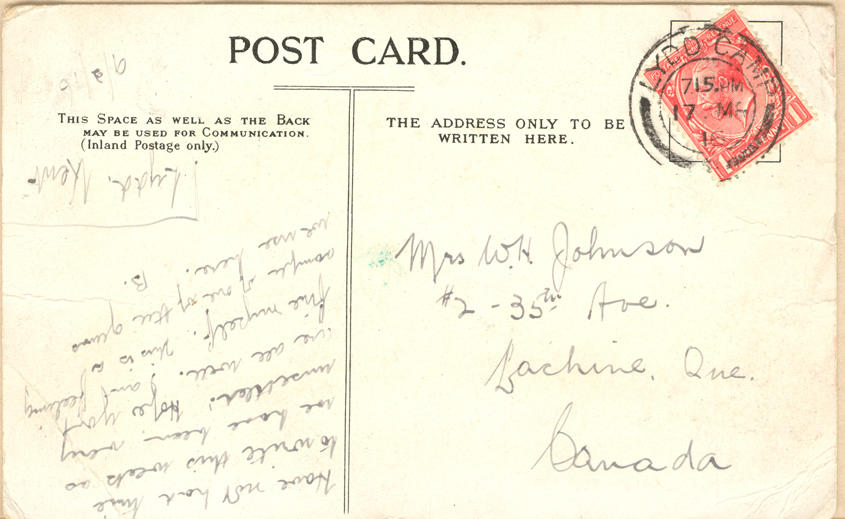 POST CARD.
THIS SPACE AS WELL AS THE BACK
MAY BE USED FOR COMMUNICATION.
(Inland Postage only.)
THE ADDRESS ONLY TO BE
WRITTEN HERE.
LYDD CAMP
715.PM
17 MH
Mrs W.H. Johnson
#2 - 35th Ave.
Lachine, Que.
Canada
Lydd, Kent
Have not had time
to write this week as
we have been very
unsettled. Hope you
are all well. I am feeling
fine myself. This is a
sample of one of the guns
we use here.
B.